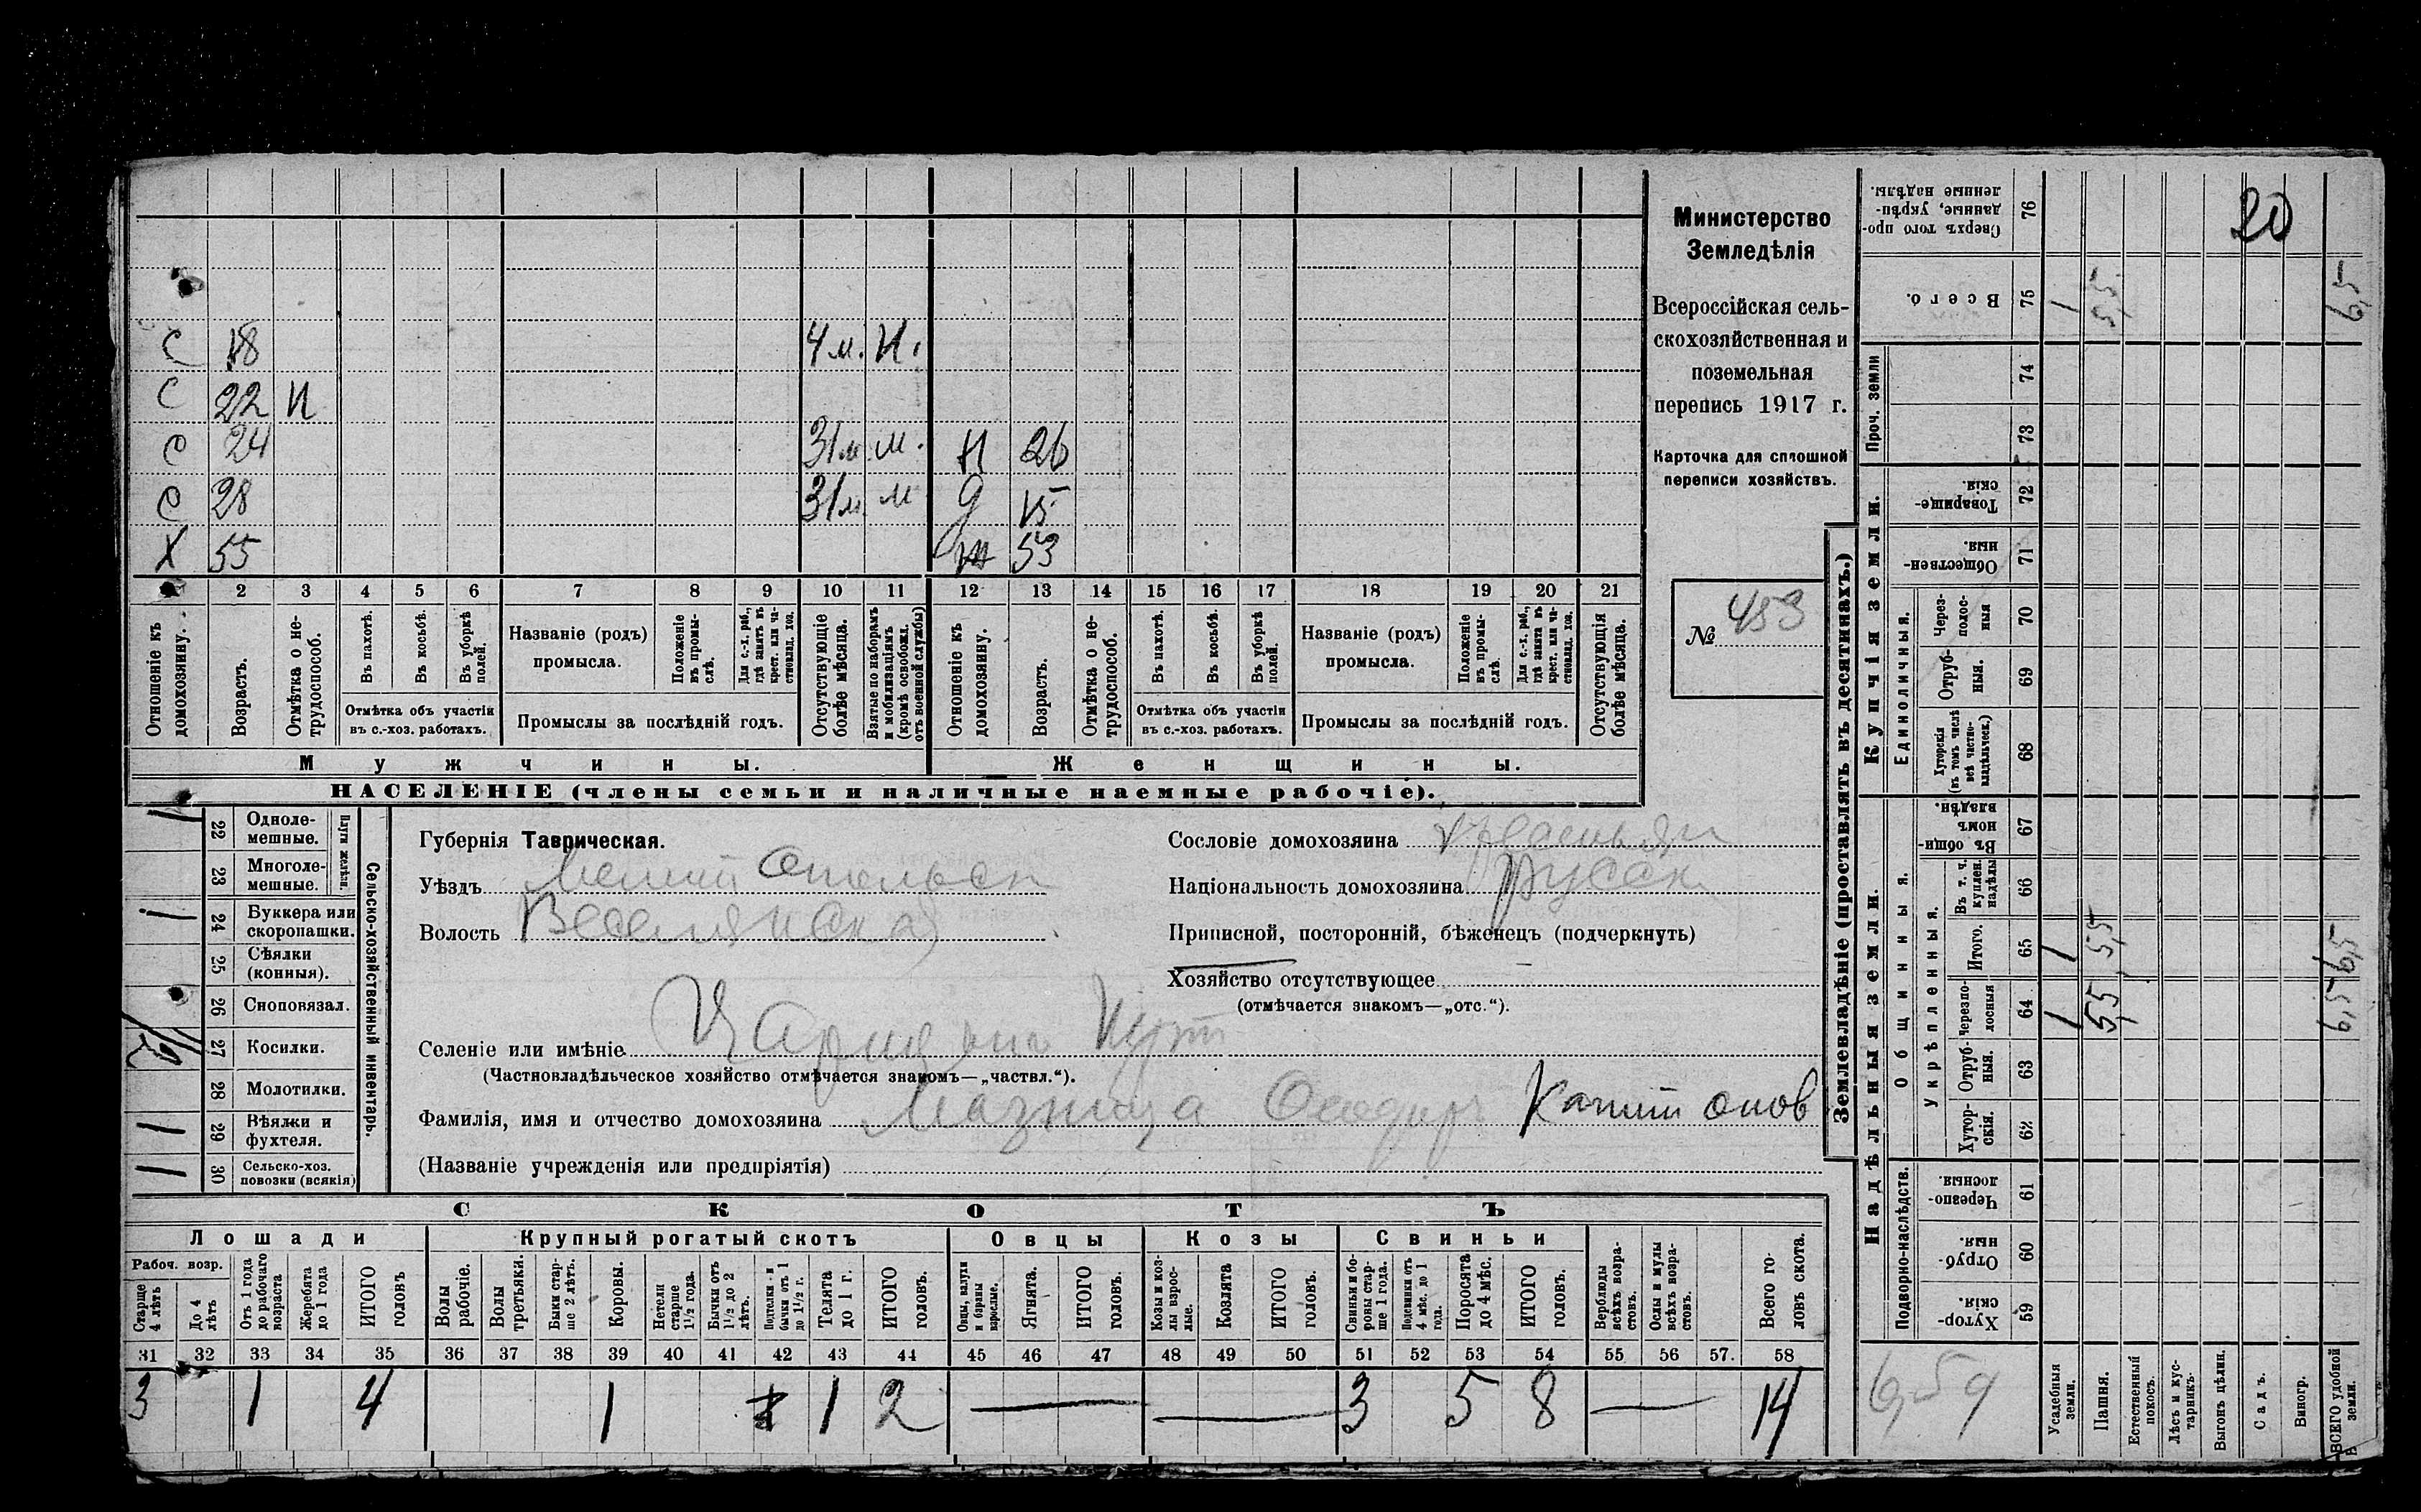 Министерство
Земледѣлія
Всероссійская сель-
скохозяйственная и
поземельная
перепись 1917 г.
Карточка для сплошной
переписи хозяйствъ.
№ 453
С 18 4 м. Н.
С 22 Н
С 24 31 м м. Н 26
С 28 31 м. м Д 15
Х 55 Ж 53
1 2 3 4 5 6 7 8 9 10 11 12 13 14 15 16 17 18 19 20 21
Отношеніе къ домохозяину.
Возрастъ.
Отмѣтка о не-трудоспособ.
Въ пахотѣ.
Въ косьбѣ.
Въ уборкѣ полей.
Отмѣтка объ участіи
въ с.-хоз. работахъ.
Названіе (родъ)
промысла.
Положеніе въ промы-слѣ.
Для с.-х. раб., гдѣ занятъ въ крест. или ча-стновлад. хоз.
Промыслы за послѣдній годъ.
Отсутствующіе болѣе мѣсяца.
Взятые по наборамъ и мобилизаціямъ (кромѣ освобожд. отъ военной службы)
Отношеніе къ домохозяину.
Возрастъ.
Отмѣтка о не-трудоспособ.
Въ пахотѣ.
Въ косьбѣ.
Въ уборкѣ полей.
Отмѣтка объ участіи
въ с.-хоз. работахъ.
Названіе (родъ)
промысла.
Положеніе въ промы-слѣ.
Для с.-х. раб., гдѣ занята въ крест. или ча-стновлад. хоз.
Промыслы за послѣдній годъ.
Отсутствующія болѣе мѣсяца.
Мужчины. Женщины.
НАСЕЛЕНІЕ (члены семьи и наличные наемные рабочіе).
Сельско-хозяйственный инвентарь.
Плуги желѣзн.
1 22 Одноле-мешные.
23 Многоле-мешные.
1 24 Буккера или скоропашки.
25 Сѣялки (конныя).
26 Сноповязал.
1/2 27 Косилки.
28 Молотилки.
1 29 Вѣялки и фухтеля.
1 30 Сельско-хоз. повозки (всякія)
Губернія Таврическая.
Уѣздъ Мелитопольск
Волость Веселянская
Селеніе или имѣніе
(Частновладѣльческое хозяйство отмѣчается знакомъ—„частвл.“).
Фамилія, имя и отчество домохозяина Мазница Феодоръ Капитонов
(Названіе учрежденія или предпріятія)
Сословіе домохозяина крестьян
Національность домохозяина русск
Приписной, посторонній, бѣженецъ (подчеркнуть)
Хозяйство отсутствующее
(отмѣчается знакомъ—„отс.“).
СКОТЪ
Лошади Крупный рогатый скотъ Овцы Козы Свиньи
Рабоч. возр.
Старше 4 лѣтъ
До 4 лѣтъ
Отъ 1 года до рабочаго возраста
Жеребята до 1 года
ИТОГО головъ
Волы рабочіе.
Волы третьяки.
Быки стар-ше 2 лѣтъ.
Коровы.
Нетели старше 1½ года.
Бычки отъ 1½ до 2 лѣтъ.
Подтелки и бычки отъ 1 до 1½ г.
Телята до 1 г.
ИТОГО головъ.
Овцы, валухи и бараны взрослые.
Ягнята.
ИТОГО головъ.
Козы и коз-лы взрос-лые.
Козлята
ИТОГО головъ.
Свиньи и бо-ровы стар-ше 1 года.
Подсвинки отъ 4 мѣс. до 1 года.
Поросята до 4 мѣс.
ИТОГО головъ.
Верблюды всѣхъ возра-стовъ.
Ослы и мулы всѣхъ возра-стовъ.
Всего го-ловъ скота.
31 32 33 34 35 36 37 38 39 40 41 42 43 44 45 46 47 48 49 50 51 52 53 54 55 56 57. 58
3 1 4 1 1 2 — — 3 5 8 — 14
Землевладѣніе (проставлять въ десятинахъ.)
Сверхъ того про-данные, укрѣп-ленные надѣлы. 76 20
Всего. 75 1 5,5 6,5
Купчія земли.
Проч. земли 74
73
Товарище-скія. 72
Обществен-ныя. 71
Единоличныя.
Через-полос-ныя 70
Отруб-ныя. 69
Хуторскія (въ томъ числѣ всѣ частно-владѣльческ.) 68
Надѣльныя земли.
Общинныя.
Въ общи-номъ владѣн. 67
Укрѣпленныя.
Въ т. ч. куплен. надѣлы 66
Итого. 65 1 5,5 6,5
Черезпо-лосныя 64 1 5,5 6,5
Отруб-ныя. 63
Хутор-скія. 62
Подворно-наслѣдств.
Черезпо-лосныя. 61
Отруб-ныя. 60
Хутор-скія. 59
6,59
Усадебныя земли.
Пашня.
Естественный покосъ.
Лѣсъ и кус-тарникъ.
Выгонъ цѣлин.
Садъ.
Виногр.
ВСЕГО удобной земли.